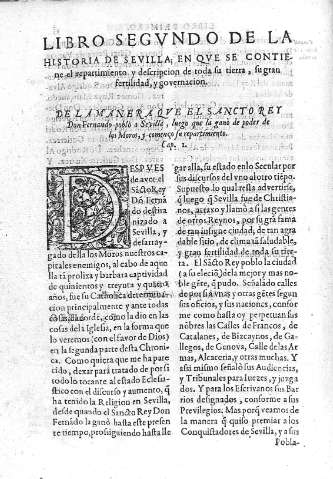 LIBRO SEGVNDO DE LA
HISTORIA DE SEVILLA, EN QVE SE CONTIE-
ne el repartimiento y descripcion de toda su tierra, su gran
fertilidad, y governacion.
DE LA MANERA QVE EL SANCTO REY
Don Fernando poblò a Sevilla, luego que la ganò de poder de
los Moros, y començò su repartimiento.
Cap. 1.
DESPVES
de aver el
Sãcto Rey
Dõ Fernã
do destra
nizado a
Sevilla, y
desarray-
gado della los Moros nuestros ca-
pitales enemigos, al cabo de aque
lla tã proliza y barbara captividad
de quinientos y treynta y quatro
años, fue su Catholica determina-
cion principalmente y ante todas
cosas dar orde, como la dio en las
cosas de la Iglesia, en la forma que
lo veremos (con el favor de Dios)
en la segunda parte desta Chroni-
ca. Como quiera que me ha pare-
cido, dexar para tratado de por si
todo lo tocante al estado Eclesias-
tico con el discurso y aumento, q̃
ha tenido la Religion en Sevilla,
desde quando el Sancto Rey Don
Fernãdo la ganò hasta este presen
te tiempo, prosiguiendo hasta lle
gar alla, su estado en lo Secular por
sus discursos del vno al otro tiẽpo.
Supuesto lo qual resta advertirse,
q̃ luego q̃ Sevilla fue de Christia-
nos, atraxo y llamò a si las gentes
de otros Reynos, por su grã fama
de tan insigne ciudad, de tan agra
dable sitio, de clima tã saludable,
y gran fertilidad de toda su tierra.
El Sãcto Rey poblo la ciudad
(a su elecciõ) de la mejor y mas no-
ble gẽte, q̃ pudo. Señalado calles
de por si a vnas y otras gẽtes segun
sus oficios, y sus naciones, confor
me como hasta oy perpetuan sus
nõbres las Calles de Francos, de
Catalanes, de Bizcaynos, de Ga-
llegos, de Genova, Calle de las Ar
mas, Alcaceria, y otras muchas. Y
assi mismo señalò sus Audiencias,
y Tribunales para Iuezes, y juzga
dos. Y para los Escrivanos sus Ba-
rrios designados, conforme a sus
Previlegios. Mas porq̃ veamos de
la manera q̃ quiso premiar a los
Conquistadores de Sevilla, y a sus
Pobla-